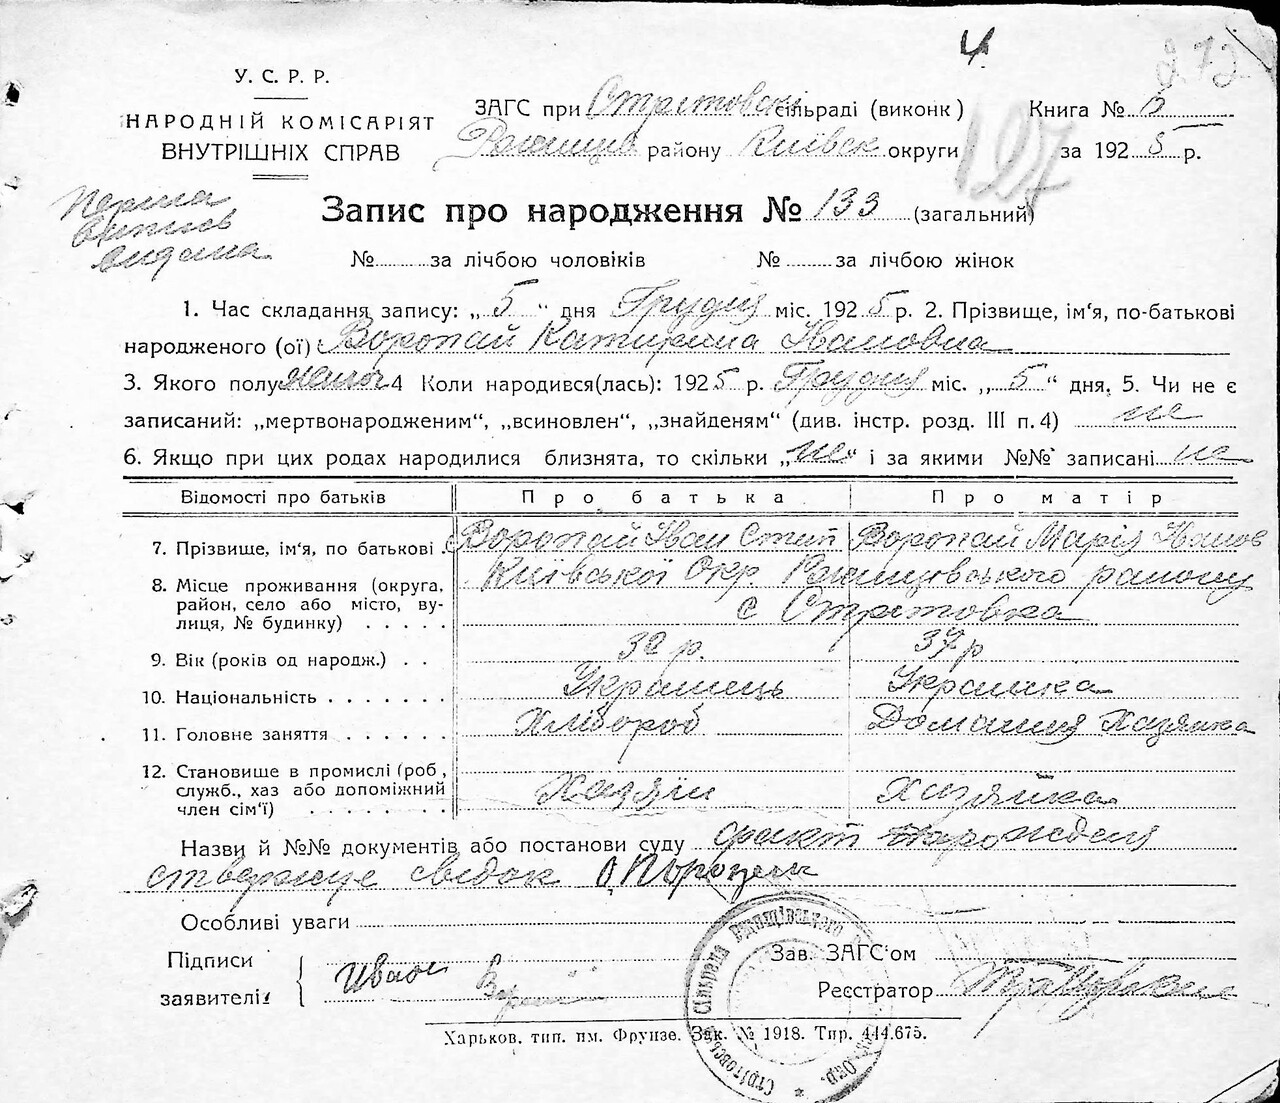 4.
272
У. С. Р. Р.
НАРОДНІЙ КОМІСАРІЯТ
ВНУТРІШНІХ СПРАВ
ЗАГС при Стрітовскі сільраді (виконк)
Рогиців району Київск округи
127
Книга № Б
за 1925 р.
Перша
випись
видана
Запис про народження № 133 (загальний)
№ за лічбою чоловіків № за лічбою жінок
1. Час складання запису: „ 5 “ дня Грудня міс. 1925 р. 2. Прізвище, ім‘я, по-батькові
народженого (ої) Воропай Катирина Івановна
3. Якого полу жіноч 4 Коли народився(лась): 1925 р. Грудня міс. „ 5 “ дня. 5. Чи не є
записаний: „мертвонародженим“, „всиновлен“, „знайденям“ (див. інстр. розд. III п. 4) не
6. Якщо при цих родах народилися близнята, то скільки „не“ і за якими №№ записані не
Відомості про батьків Про батька Про матір
7. Прізвище, ім‘я, по батькові Воропай Іван Стип Воропай Марія Іванов
8. Місце проживання (округа, Київської Окр. району
район, село або місто, ву-
лиця, № будинку) с Стрітовка
9. Вік (років од народж.) 32 р. 37 р
10. Національність Українець Українка
11. Головне заняття Хлібороб Домашня Хазяйка
12. Становище в промислі (роб,
служб., хаз або допоміжний Хазяїн Хазяйка
член сім‘ї)
Назви й №№ документів або постанови суду факт народження
ствержує свідок
Особливі уваги
Підписи
заявителів
Иван
Зав. ЗАГС‘ом
Реєстратор
Харьков. тип. им. Фрунзе. Зак. № 1918. Тир. 444.675.